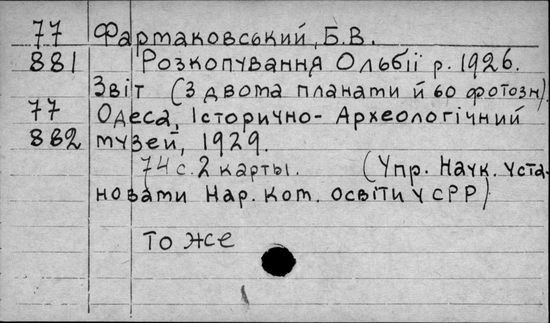 77 Фармаковський, Б.В.
881 Розкопування Ольбії р. 1926.
Звіт (З двома планами й 60 фотозн).
77 Одеса, Історично-Археологічний
862 музей, 1929.
74 с. 2 карты. (Упр. Наук. Уста-
новами Нар. Ком. Освіти УСРР)
То же